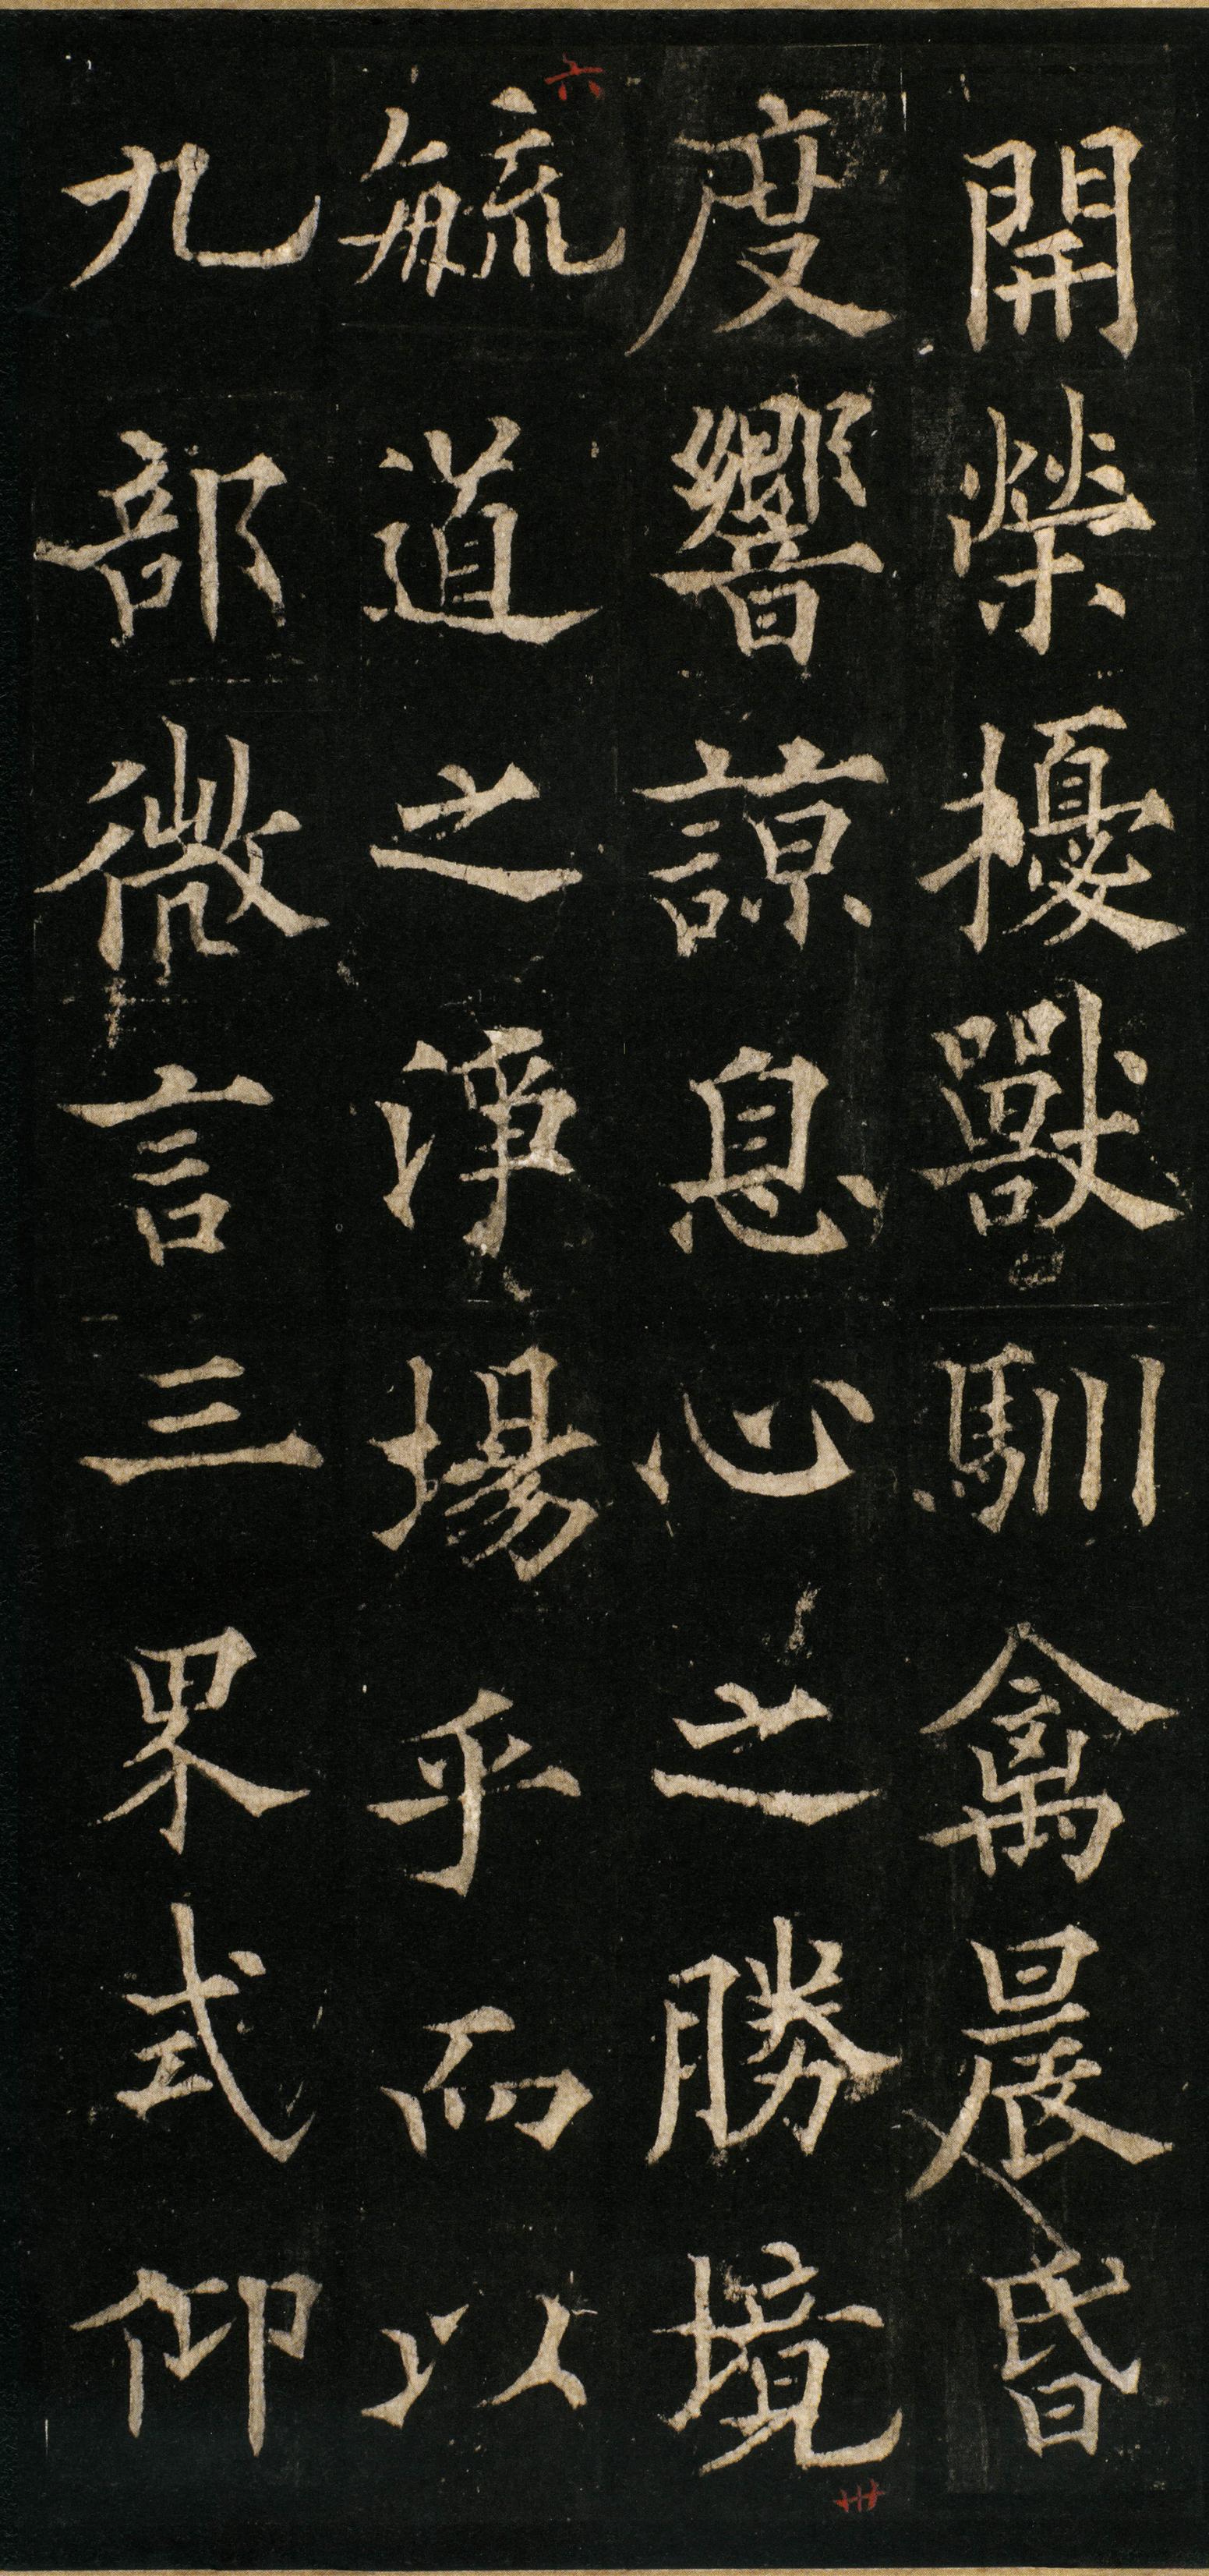 開榮擾獸馴禽晨昏
度響諒息心之勝境
毓道之淨場乎而以
九部微言三界式仰
六
卅